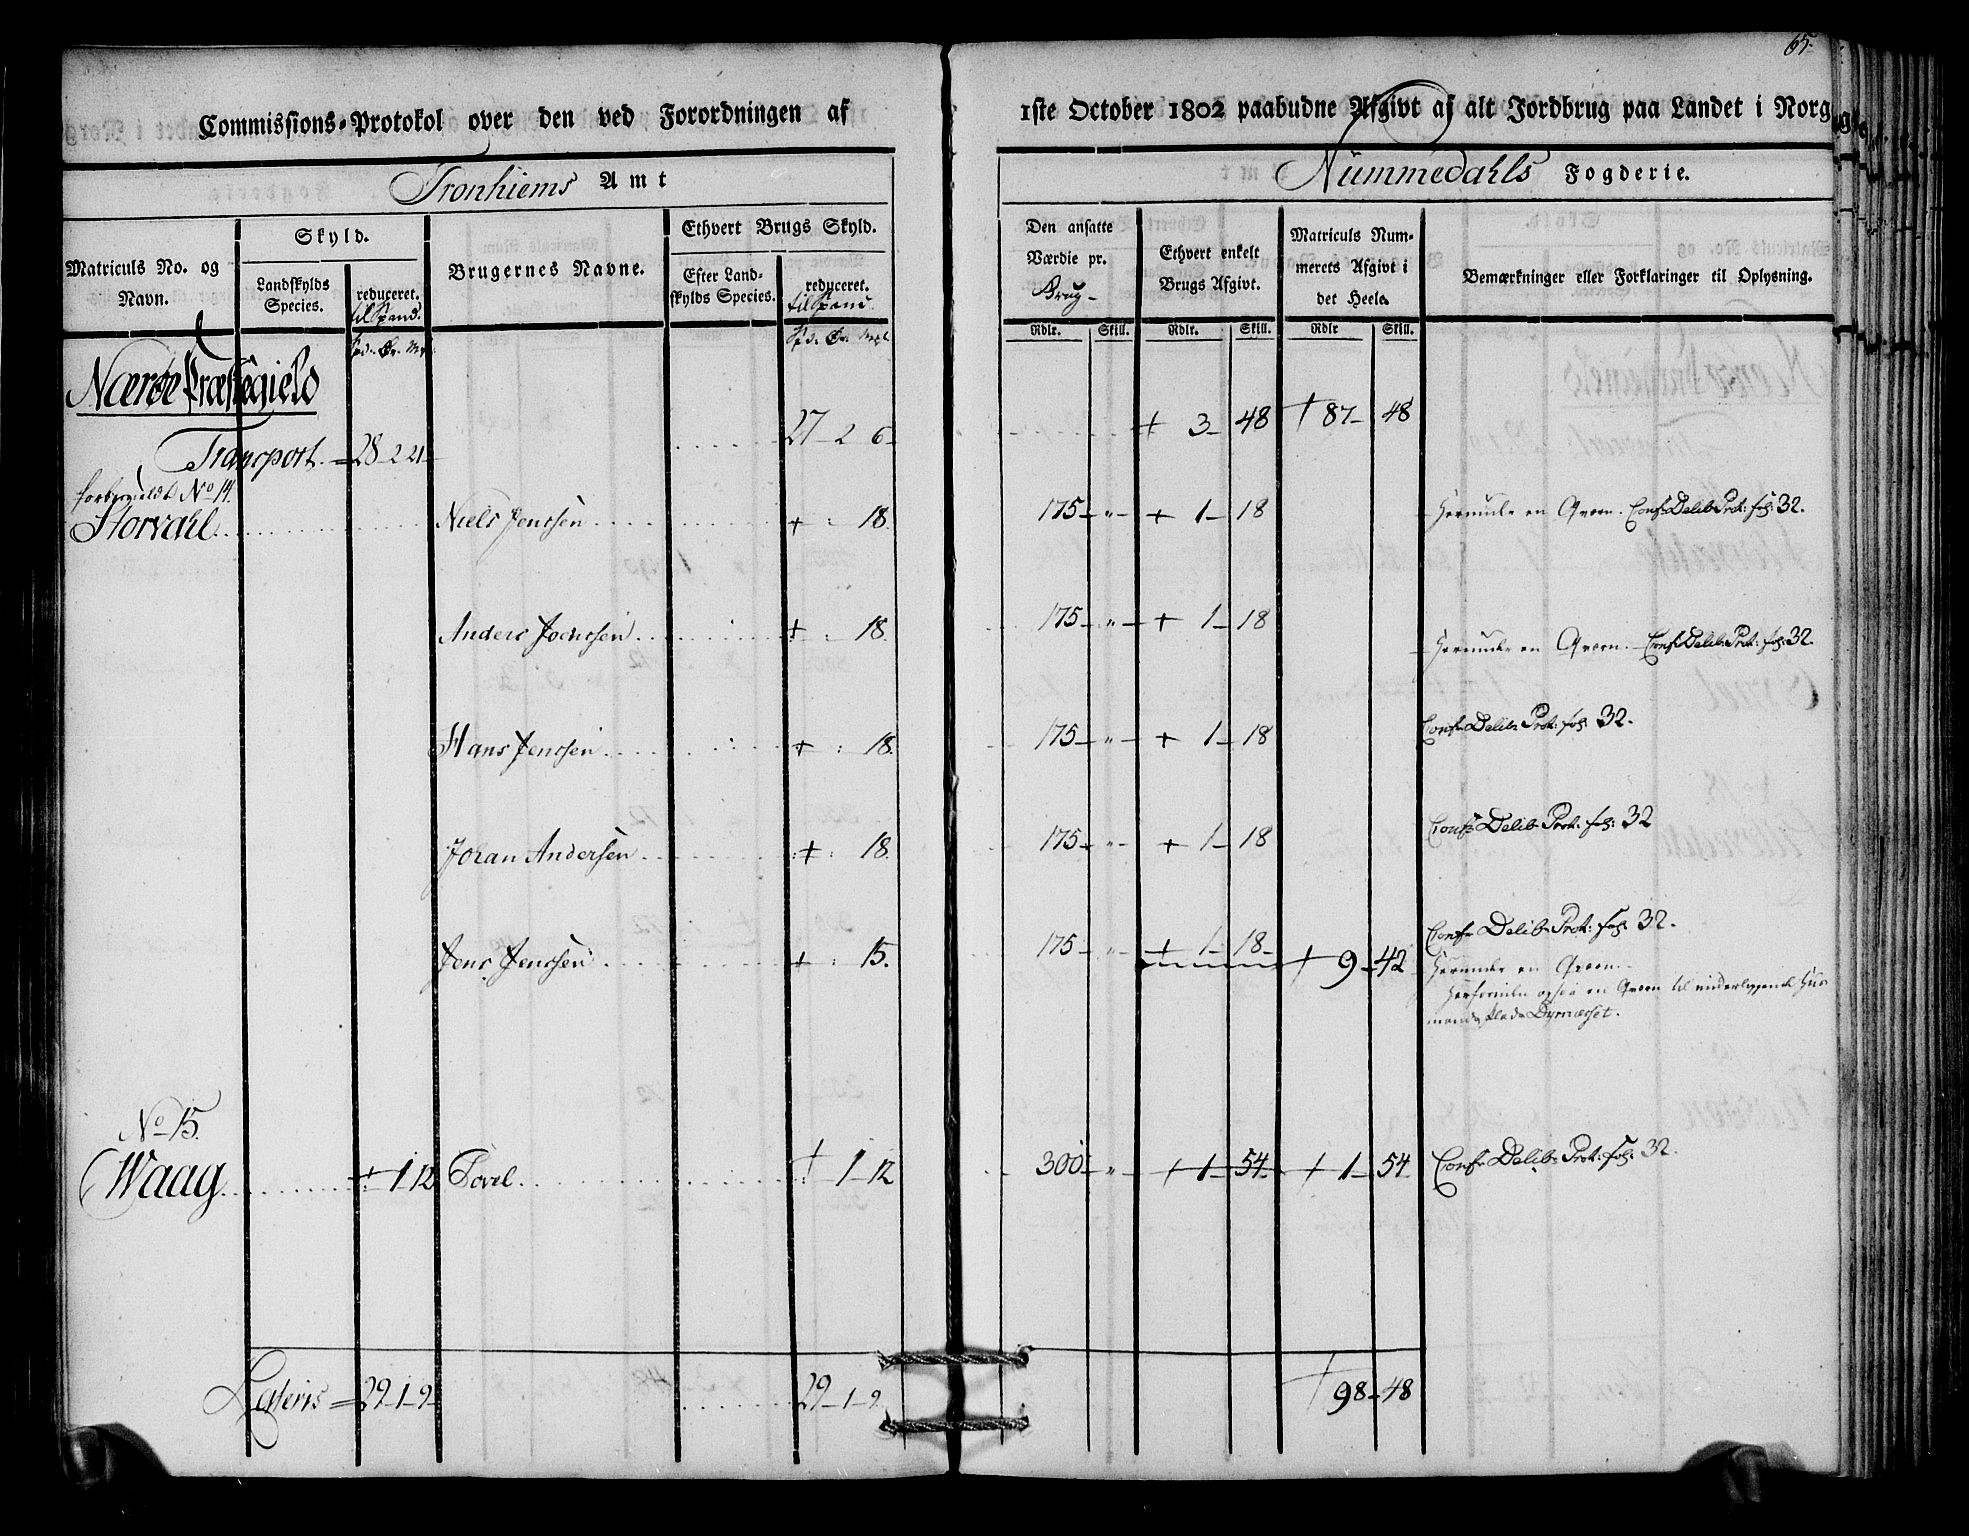 65.
Commissions-Protokol over den ved Forordningen af 1ste October 1802 paabudne Afgivt af alt Jordbrug paa Landet i Norg
Tronhiems Amt
Nummedahls Fogderie.
Matriculs No. og Navn.
Skyld.
Landskylds Species.
reduceret. til Spand.
Brugernes Navne.
Ethvert Brugs Skyld.
Efter Landskylds Species.
reduceret. til Spand
Den ansatte Værdie pr. Brug-
Ethvert enkelt Brugs Afgivt.
Matriculs Nummerets Afgivt i det Heele.
Bemærkninger eller Forklaringer til Oplysning.
Rdlr. Skill. Rdlr. Skill. Rdlr Skill.
Nærøe Præstegield
Transport. 28-2-21 27-2 6- + 3- 48 + 87- 48
forbemeldt No 14.
Storvahl Niels Jenssen + : 18. 175- "- + 1- 18 Herunder en Qværn. Conf. Delib. Prot: fol: 32.
Anders Joenssen + : 18. 175- "- + 1- 18 Herunder en Qværn. Conf. Delib. Prot: fol: 32.
Hans Jenssen + : 18. 175- "- + 1- 18 Conf. Delib. Prot: fol: 32.
Johan Andersen + : 18. 175- "- + 1- 18 Conf. Delib. Prot: fol: 32
Jens Jenssen + : 15. 175- "- + 1- 18- + 9- 42 Conf. Delib. Prot: fol: 32.
Herunder en Qværn.
Herforuden ogsaa en Qværn til underliggende Hus
mands Plads Dyrnæsset.
No 15.
Waag + 1 12 Povel + 1-12 300 " + 1- 54- + 1- 54 Conf. Delib. Prot: fol: 32.
Lateris 29-1-9- 29-1-9. + 98-48